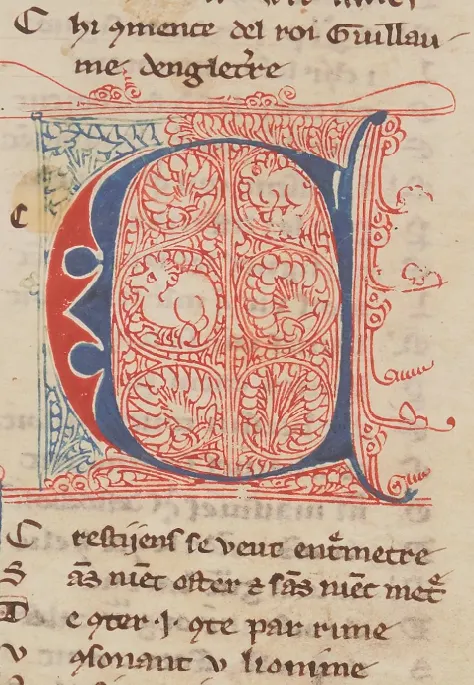 C hi ꝯmence del roi Guillau-
me denglet̉re
c
C restijens se veut ent̾metre
S ās niēt oster ⁊ sās niēt met̾
D e ꝯter ·i· ꝯte par rime
V ꝯsonant v lionime